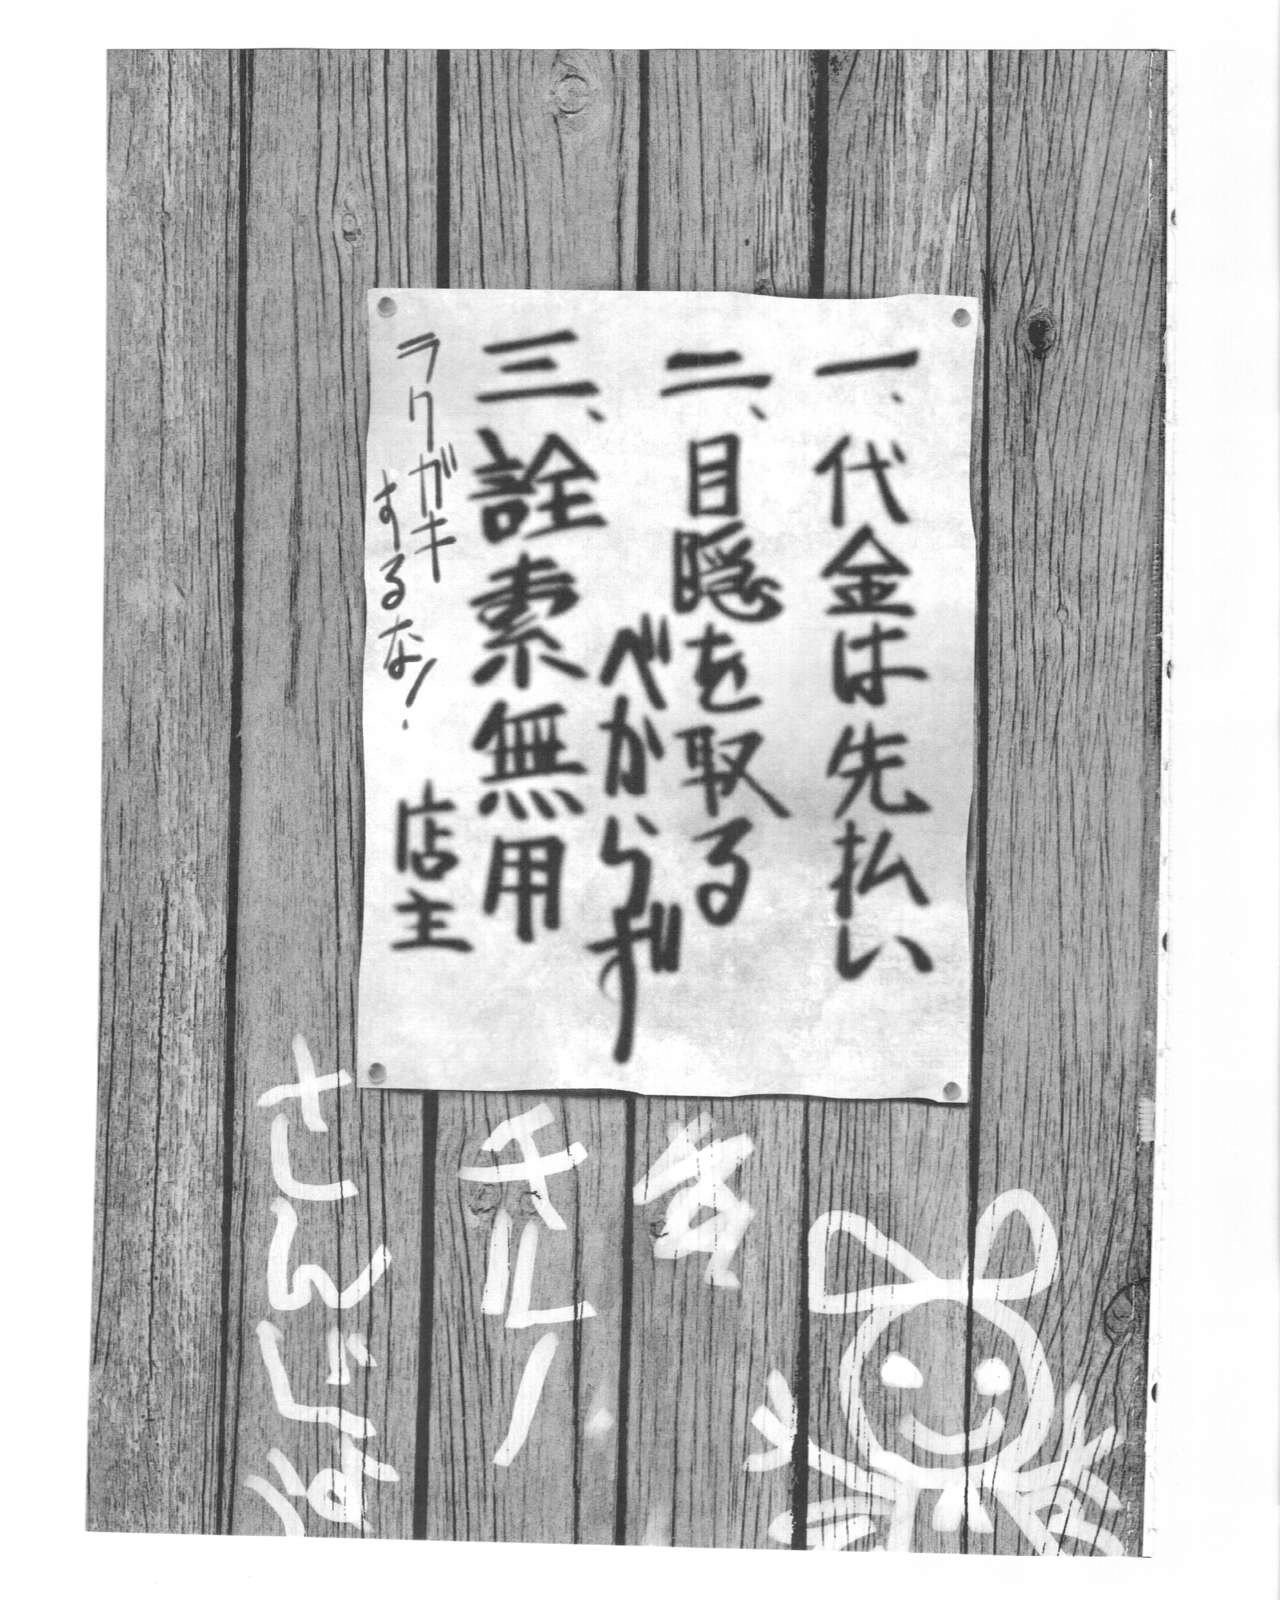 一、代金は先払い
二、目隠を取る
べからず
三、詮索無用
ラクガキ
するな!
店主
チルノ
さんじょう